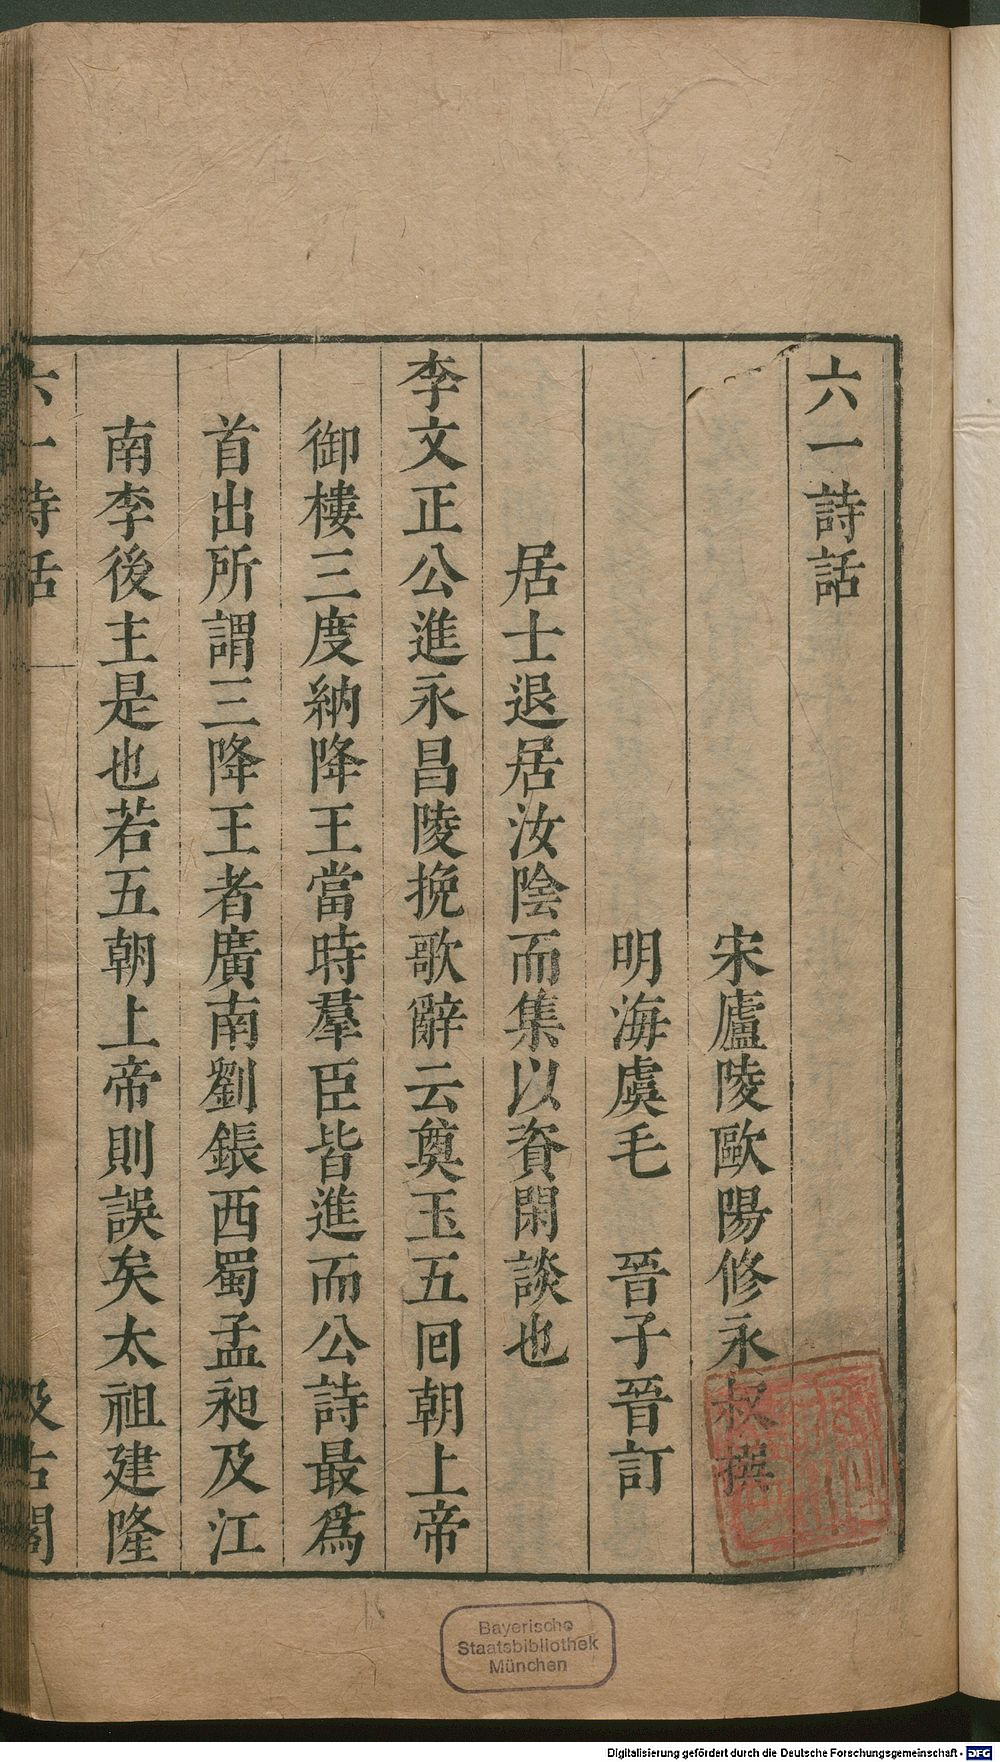 六一詩話
宋廬陵歐陽修永叔撰
明海虞毛 晉子晉訂
居士退居汝陰而集以資閑談也
李文正公進永昌陵挽歌辭云奠玉五回朝上帝
御樓三度納降王當時羣臣皆進而公詩最爲
首出所謂三降王者廣南劉鋹西蜀孟昶及江
南李後主是也若五朝上帝則誤矣太祖建隆
六一詩話 汲古閣
Bayerische
Staatsbibliothek
München
Digitalisierung gefördert durch die Deutsche Forschungsgemeinschaft - DFG